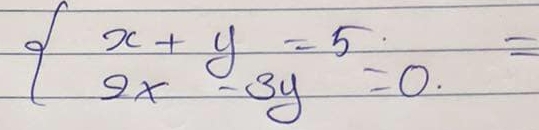 { x + y = 5. =
2x - 3y = 0.